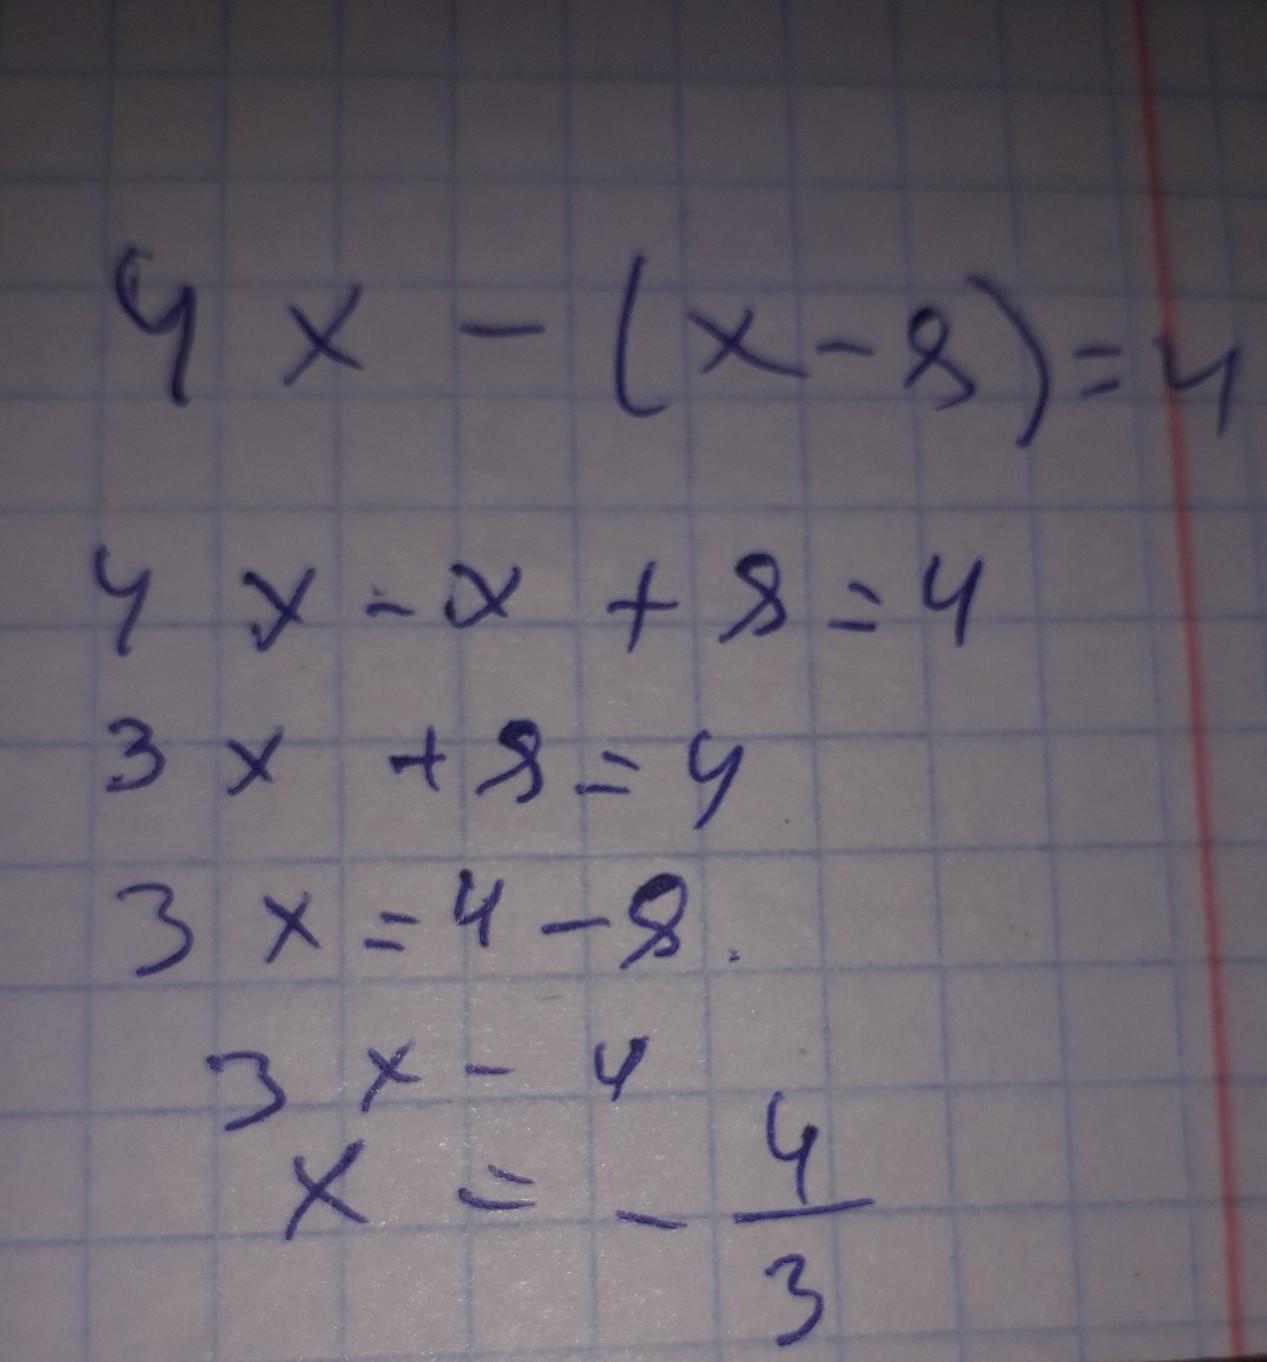 4x - (x - 8) = 4
4x - x + 8 = 4
3x + 8 = 4
3x = 4 - 8.
3x - 4
x = - 4/3